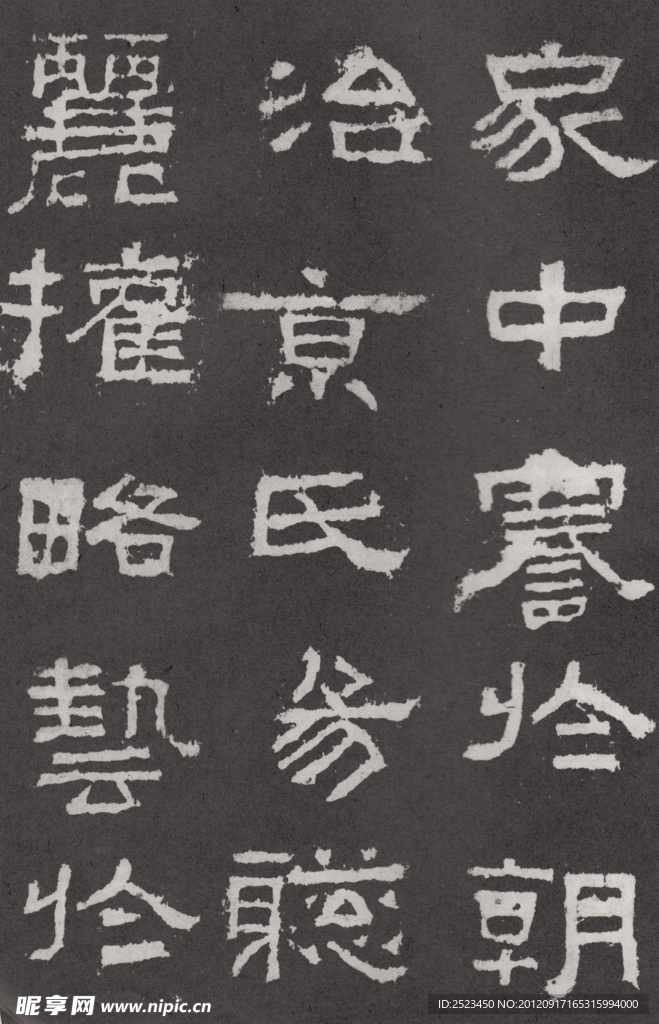 家中謇於朝
治京氏易聰
麗權略藝於
昵享网 www.nipic.cn
ID:2523450 NO:20120917165315994000